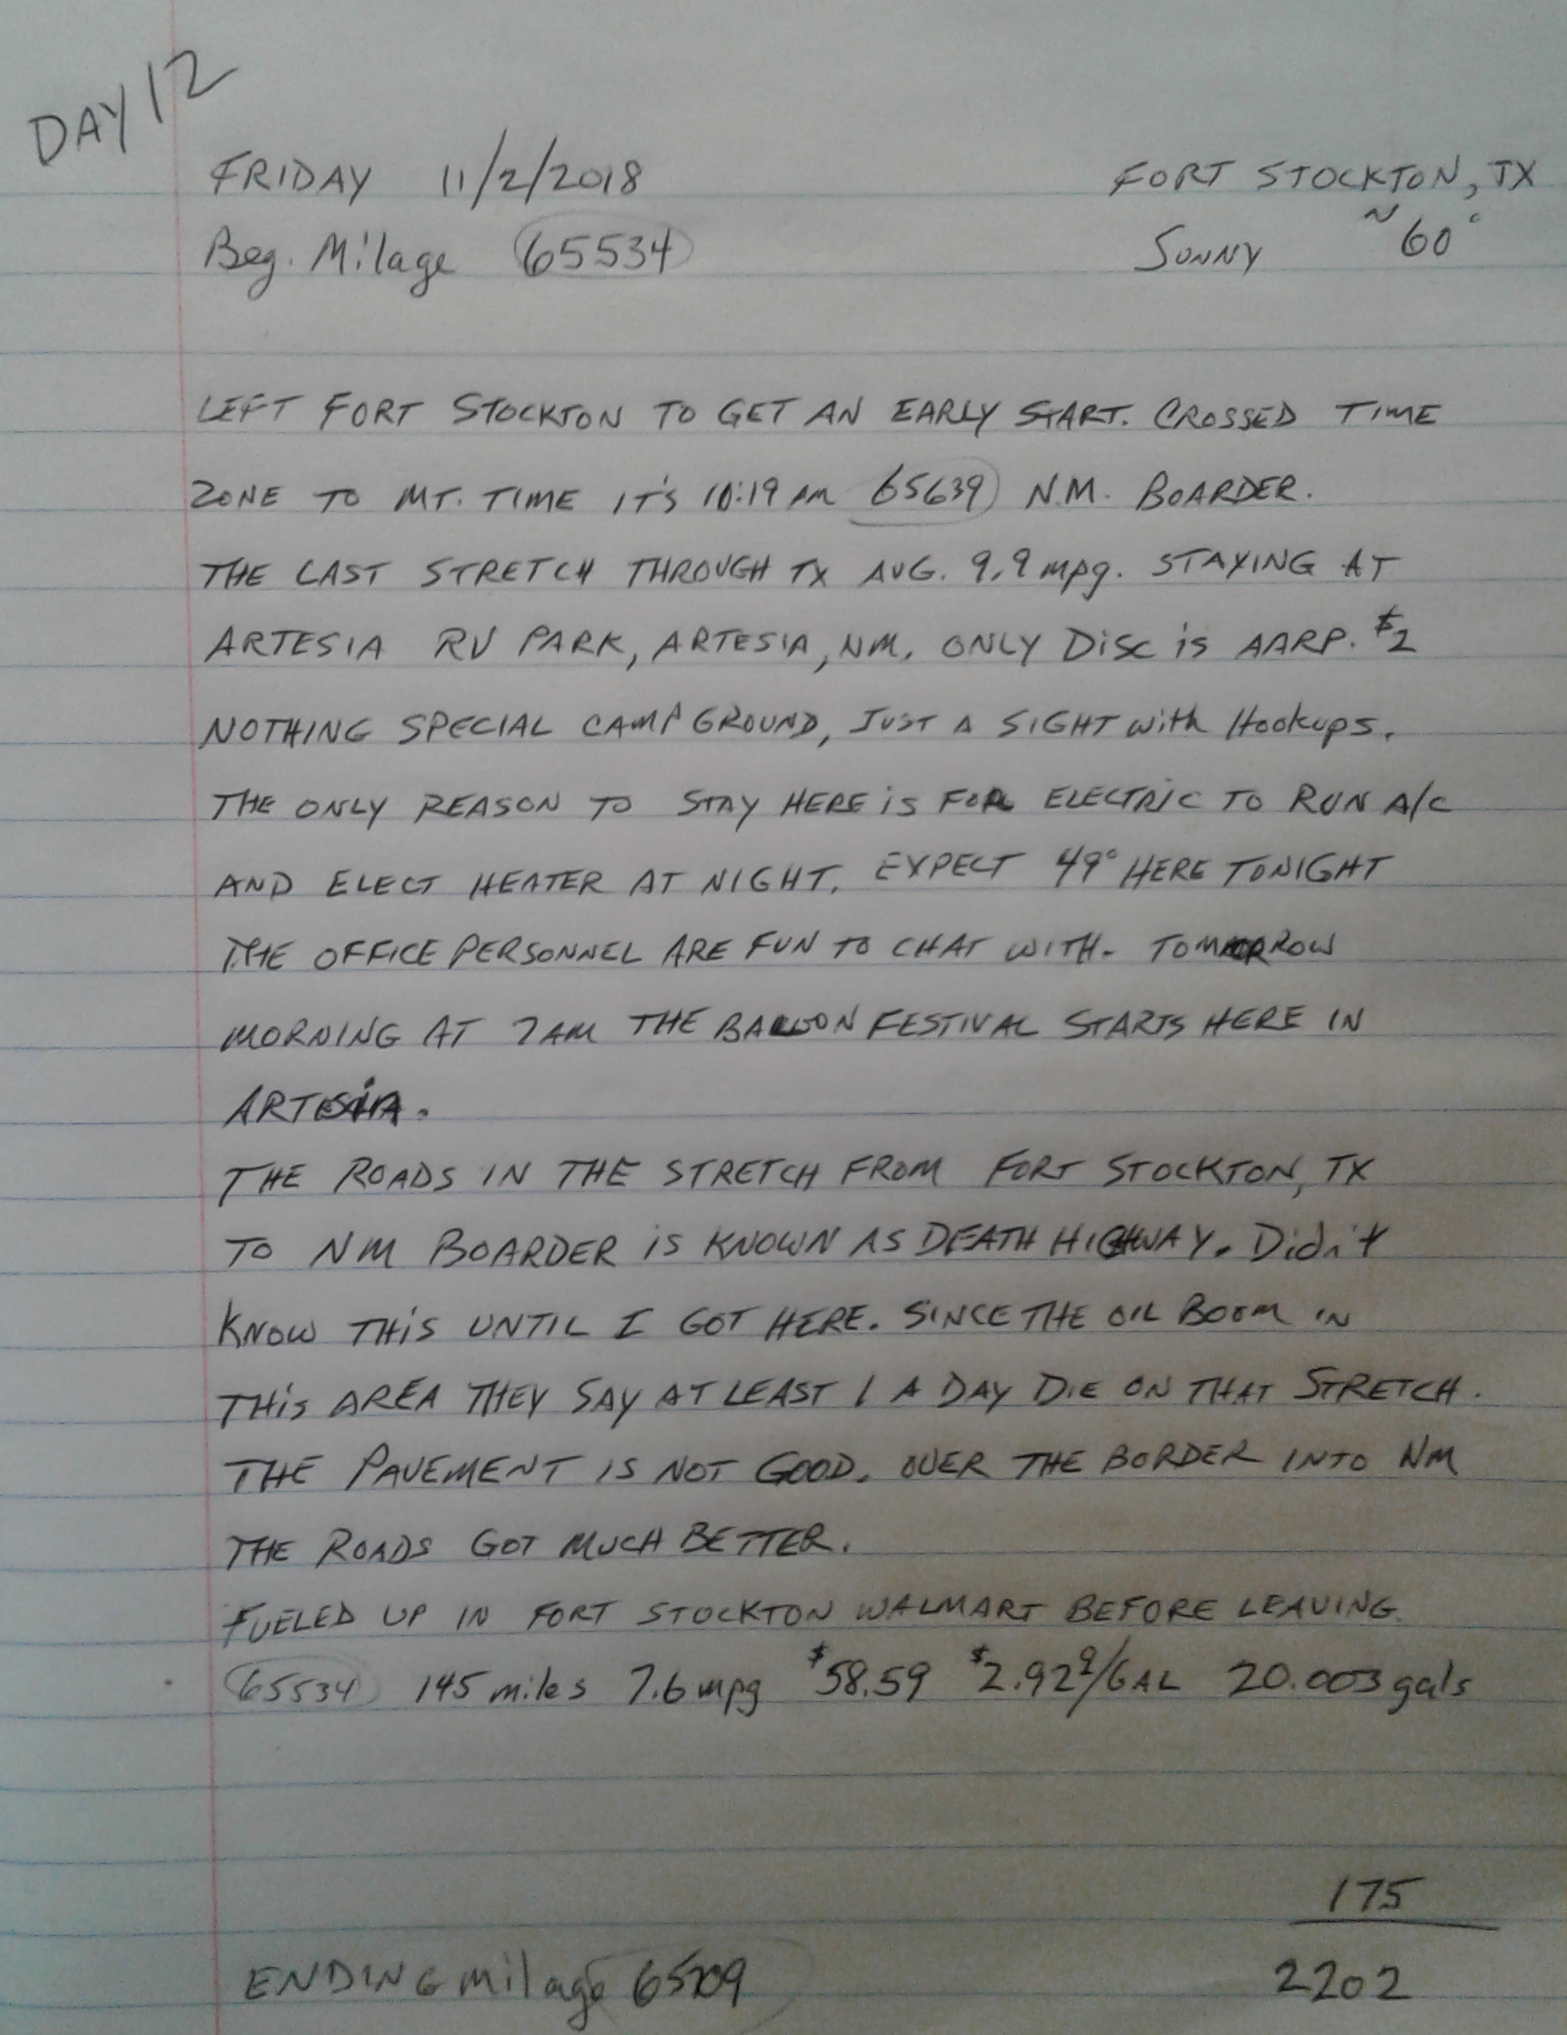 DAY 12
FRIDAY 11/2/2018 FORT STOCKTON, TX
Beg. Milage 65534 SUNNY ~60°
LEFT FORT STOCKTON TO GET AN EARLY START. CROSSED TIME
ZONE TO MT. TIME IT'S 10:19 AM 65639 N.M. BOARDER.
THE LAST STRETCH THROUGH TX AVG. 9.9 mpg. STAYING AT
ARTESIA RV PARK, ARTESIA, NM. ONLY DISC is AARP. $2
NOTHING SPECIAL CAMPGROUND, JUST A SIGHT with Hookups.
THE ONLY REASON TO STAY HERE is FOR ELECTRIC TO RUN A/C
AND ELECT HEATER AT NIGHT. EXPECT 49° HERE TONIGHT
THE OFFICE PERSONNEL ARE FUN TO CHAT WITH. TOMMOROW
MORNING AT 7AM THE BALLOON FESTIVAL STARTS HERE IN
ARTESIA.
THE ROADS IN THE STRETCH FROM FORT STOCKTON, TX
TO NM BOARDER is KNOWN AS DEATH HIGHWAY. Didn't
KNOW THIS UNTIL I GOT HERE. SINCE THE OIL BOOM IN
THIS AREA THEY SAY AT LEAST 1 A DAY DIE ON THAT STRETCH.
THE PAVEMENT IS NOT GOOD. OVER THE BORDER INTO NM
THE ROADS GOT MUCH BETTER.
FUELED UP IN FORT STOCKTON WALMART BEFORE LEAVING.
65534 145 miles 7.6 mpg $58.59 $2.92⁹/GAL 20.003 gals
175
ENDING milage 65709 2202